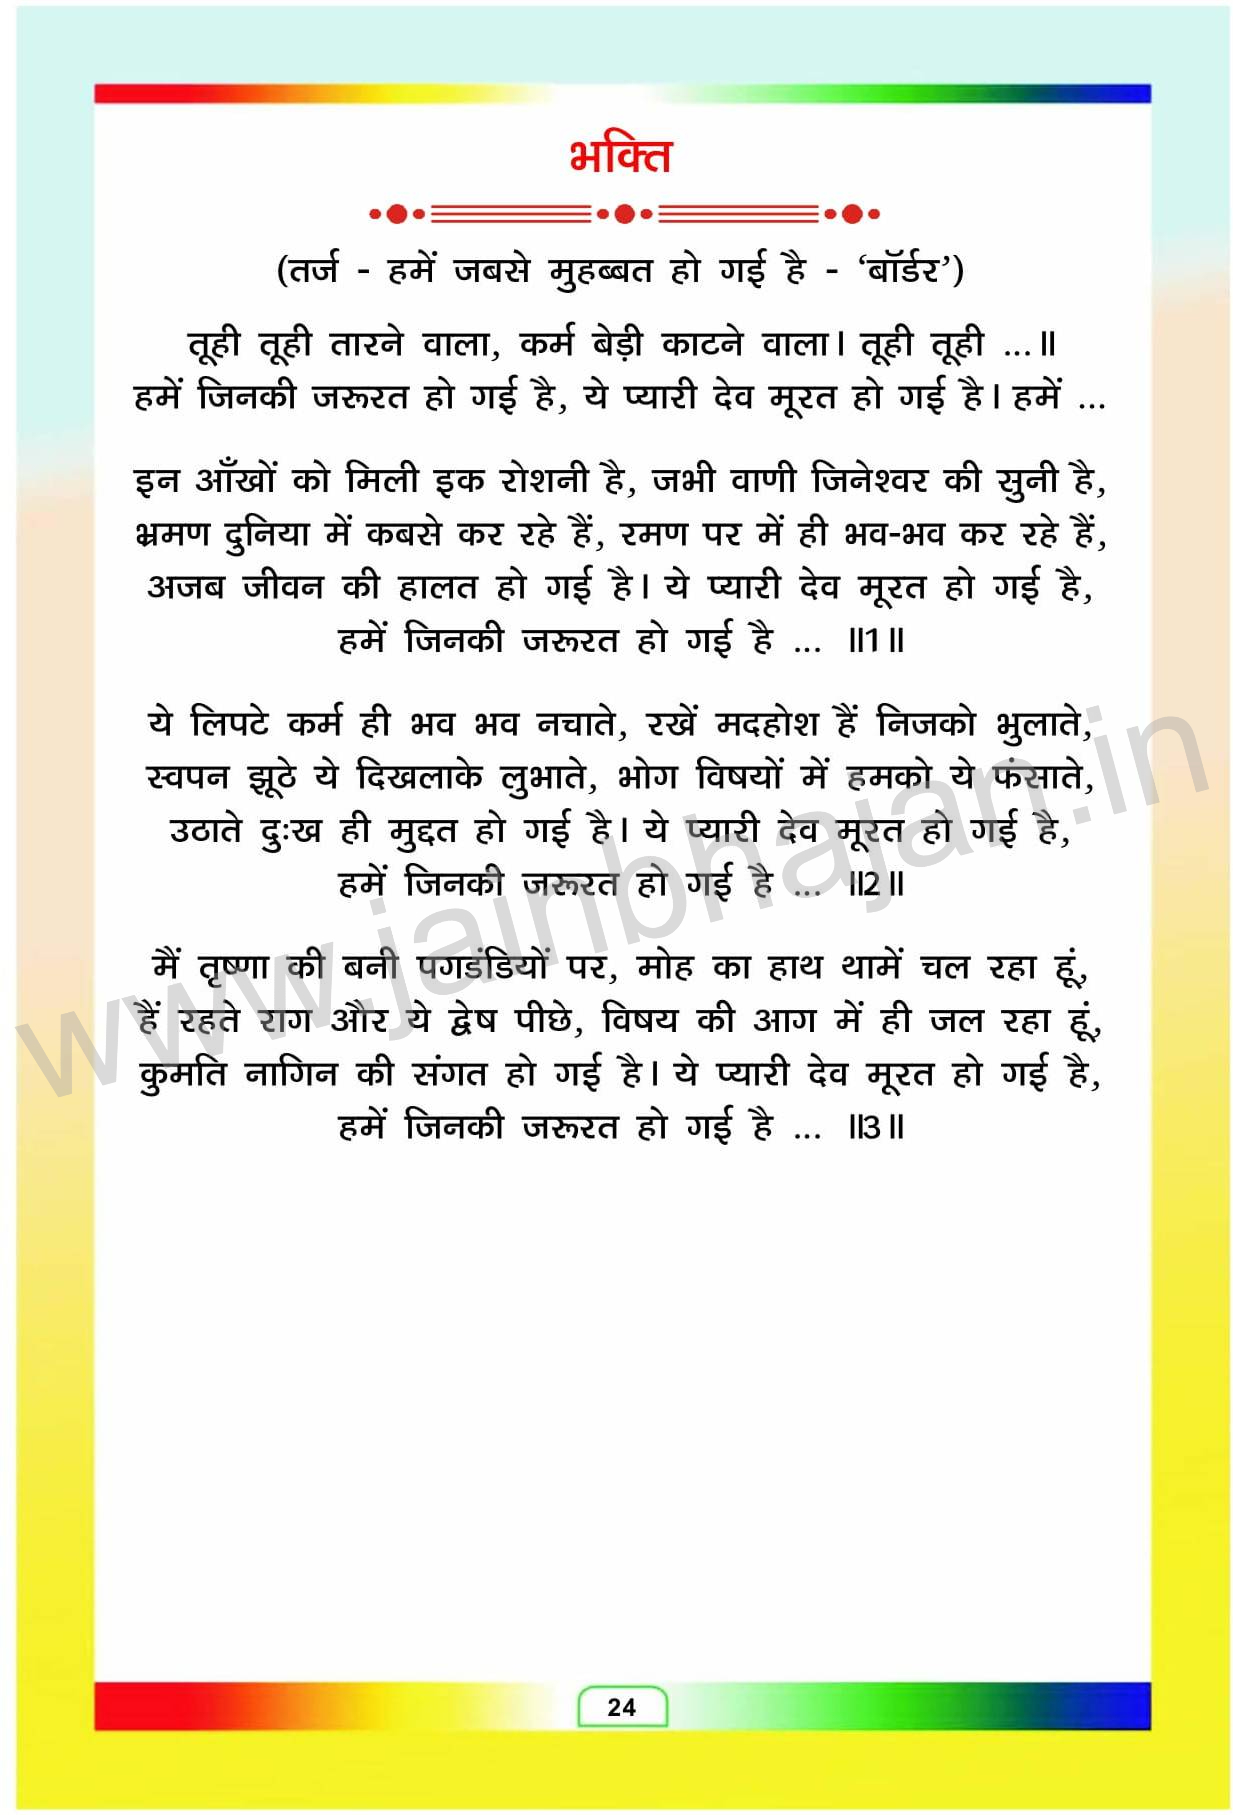 भक्ति
(तर्ज - हमें जबसे मुहब्बत हो गई है - ‘बॉर्डर’)
तूही तूही तारने वाला, कर्म बेड़ी काटने वाला। तूही तूही ...॥
हमें जिनकी जरूरत हो गई है, ये प्यारी देव मूरत हो गई है। हमें ...
इन आँखों को मिली इक रोशनी है, जभी वाणी जिनेश्वर की सुनी है,
भ्रमण दुनिया में कबसे कर रहे हैं, रमण पर में ही भव-भव कर रहे हैं,
अजब जीवन की हालत हो गई है। ये प्यारी देव मूरत हो गई है,
हमें जिनकी जरूरत हो गई है ... ॥1॥
ये लिपटे कर्म ही भव भव नचाते, रखें मदहोश हैं निजको भुलाते,
स्वपन झूठे ये दिखलाके लुभाते, भोग विषयों में हमको ये फंसाते,
उठाते दुःख ही मुद्दत हो गई है। ये प्यारी देव मूरत हो गई है,
हमें जिनकी जरूरत हो गई है ... ॥2॥
मैं तृष्णा की बनी पगडंडियों पर, मोह का हाथ थामें चल रहा हूं,
हैं रहते राग और ये द्वेष पीछे, विषय की आग में ही जल रहा हूं,
कुमति नागिन की संगत हो गई है। ये प्यारी देव मूरत हो गई है,
हमें जिनकी जरूरत हो गई है ... ॥3॥
www.jainbhajan.in
24